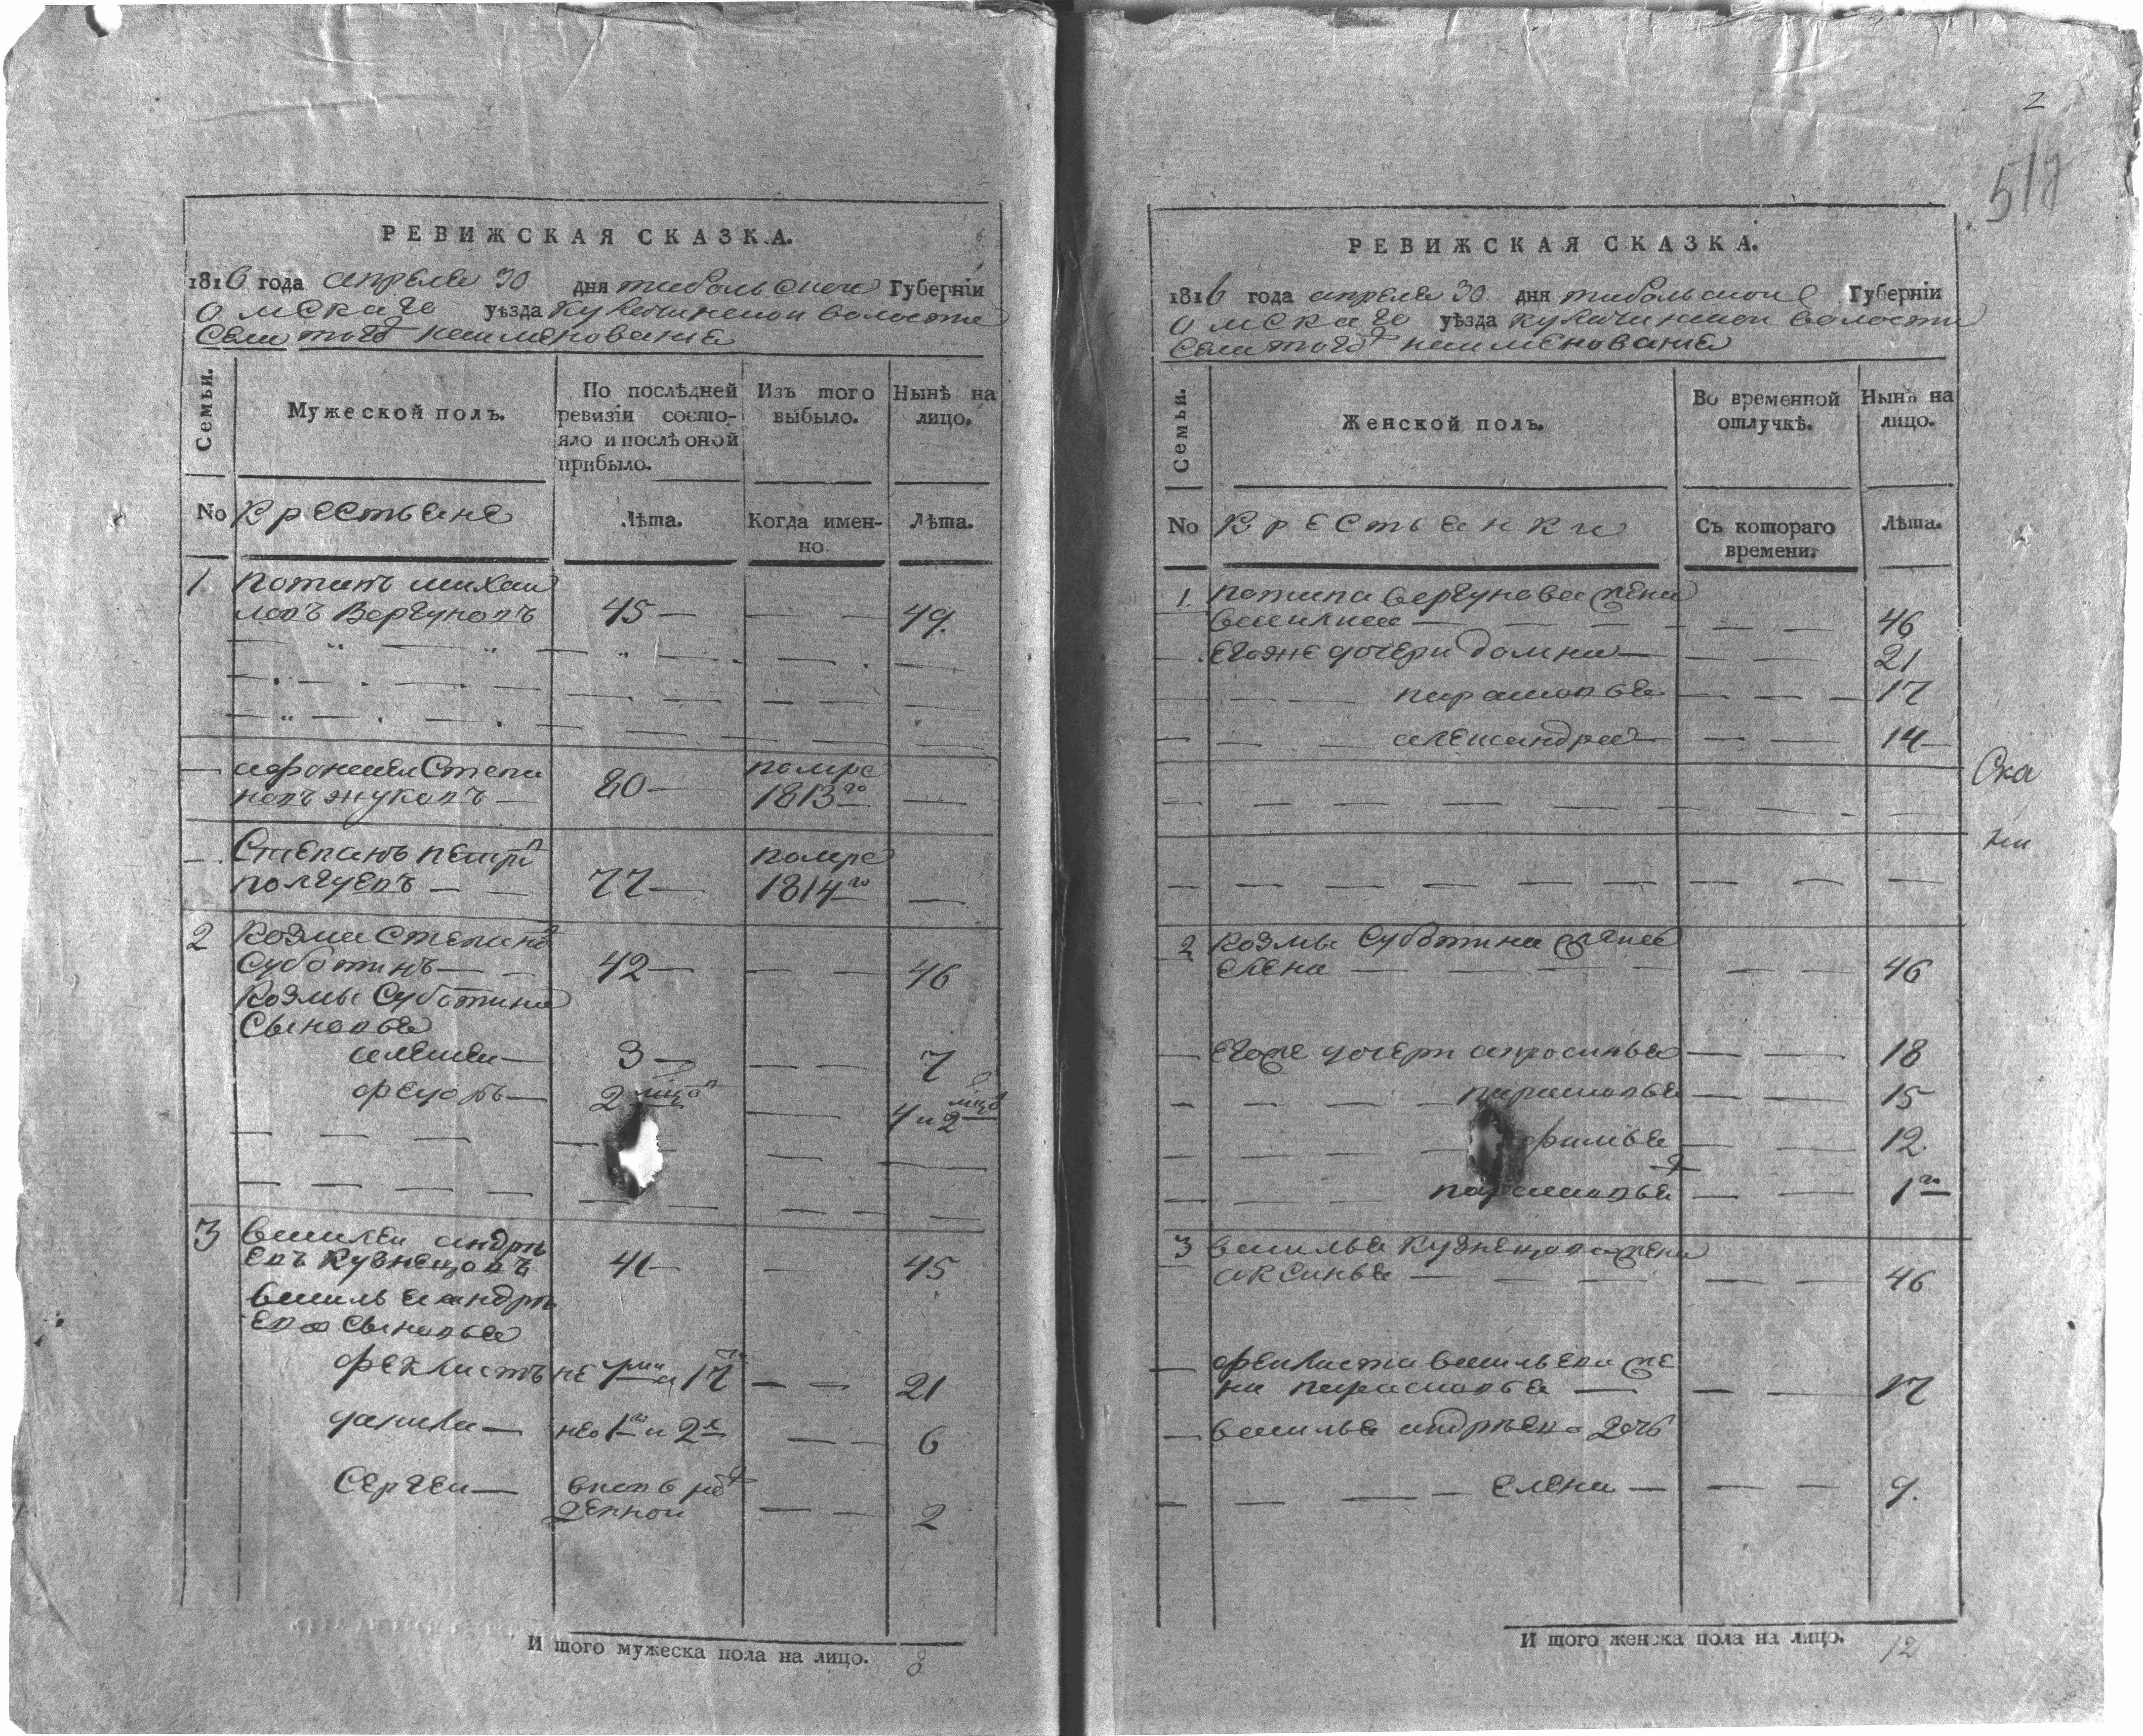 РЕВИЖСКАЯ СКАЗКА.
1816 года апреля 30 дня тобольской Губерніи
омскаго уѣзда кулачинской волости
Села тогож наименования
Семьи.
Мужеской полъ.
По послѣдней
ревизіи состо-
яло и послѣ оной
прибыло.
Изъ того
выбыло.
Нынѣ на
лицо.
No Крестьяне
Лѣта.
Когда имен-
но.
Лѣта.
1 потапъ михаи
ловъ Вергуновъ 45 — — — 49.
афонасеи Степа
новъ жуковъ — 80 — помре
1813го —
Степанъ петро
полуевъ — — 77 — помре
1814го —
2 Козма Степано
Суботинъ — — 42 — — — 46
Козмы Суботина
Сыновья
алексеи — 3 — — — 7
федоръ — 2 мцов — 4 и 2 мцов
3 василеи андрѣ
евъ Кузнецовъ 41 — — 45
василья андрѣ
ева Сыновья
феклистъ не и 17 — — 21
данила — не 1го и 2е — — 6
Сергеи — вновь ро
жденной — — 2
И того мужеска пола на лицо. 8
2
517
РЕВИЖСКАЯ СКАЗКА.
1816 года апреля 30 дня тобольской Губерніи
омскаго уѣзда кулачинской волости
Села тогож наименования
Семьи.
Женской полъ.
Во временной
отлучкѣ.
Нынѣ на
лицо.
No Крестьянки
Съ котораго
времени.
Лѣта.
1. потапа вергунова жена
василиса — — — — — — 46
Егоже дочери домна — — — 21
парасковья — — — 17
александра — — — 14 —
Ска
ки
2 Козмы Суботина жена
Елена — — — — — — 46
Егоже дочери апросинья — — 18
парасковья — — 15
фимья — — 12
парасковья — — 1го
3 василья Кузнецова жена
аксинья — — — — — — 46
феклиста васильева же
на парасковья — — — 17
василья андрѣева дочь
Елена — — — 9.
И того женска пола на лицо. 12